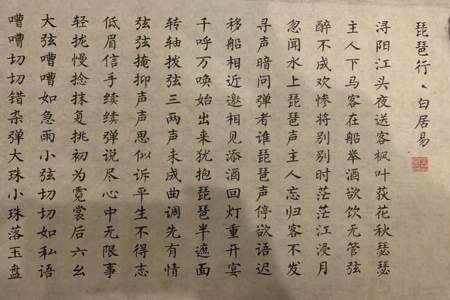 琵琶行、白居易
浔阳江头夜送客枫叶荻花秋瑟瑟
主人下马客在船举酒欲饮无管弦
醉不成欢惨将别别时茫茫江浸月
忽闻水上琵琶声主人忘归客不发
寻声暗问弹者谁琵琶声停欲语迟
移船相近邀相见添酒回灯重开宴
千呼万唤始出来犹抱琵琶半遮面
转轴拨弦三两声未成曲调先有情
弦弦掩抑声声思似诉平生不得志
低眉信手续续弹说尽心中无限事
轻拢慢捻抹复挑初为霓裳后六幺
大弦嘈嘈如急雨小弦切切如私语
嘈嘈切切错杂弹大珠小珠落玉盘